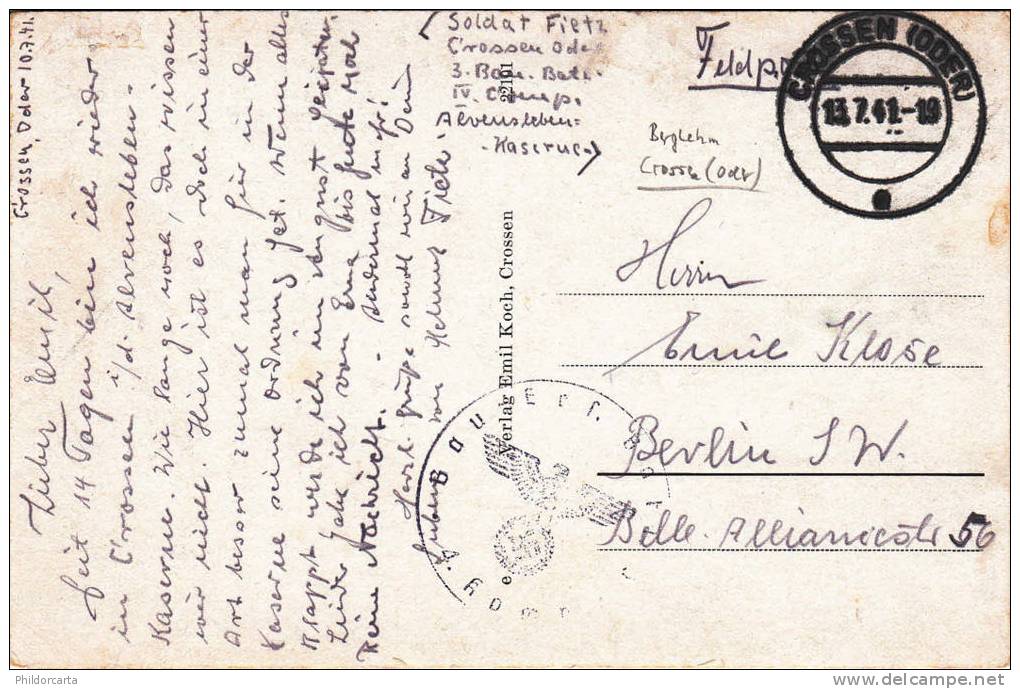 Crossen, Oder 10.7.41.
Lieber Emil,
Seit 14 Tagen bin ich wieder
in Crossen i/d. Alvensleben-
Kaserne. Wie lange noch, das wissen
wir nicht. Hier ist es doch in einer
Art besser zumal man hier in der
Kaserne seine Ordnung hat. Wenn alles
klappt werde ich im August
Leider habe ich von Ema bis heute noch
keine Nachricht. - 
Herzl. Grüße sowohl von Dein
von Helmut Fietz
Soldat Fietz
Crossen Oder
3. Bau. Batl.
IV. Comp.
Alvensleben-
-Kaserne
Feldpost
CROSSEN (ODER)
13.7.41.-19
e
Crossen (Oder)
22101
Verlag Emil Koch, Crossen
Bau Ers.
Herrn
Emil Klose
Berlin S.W.
Belle-Alliancestr 56
Phildorcarta
delcampe.net